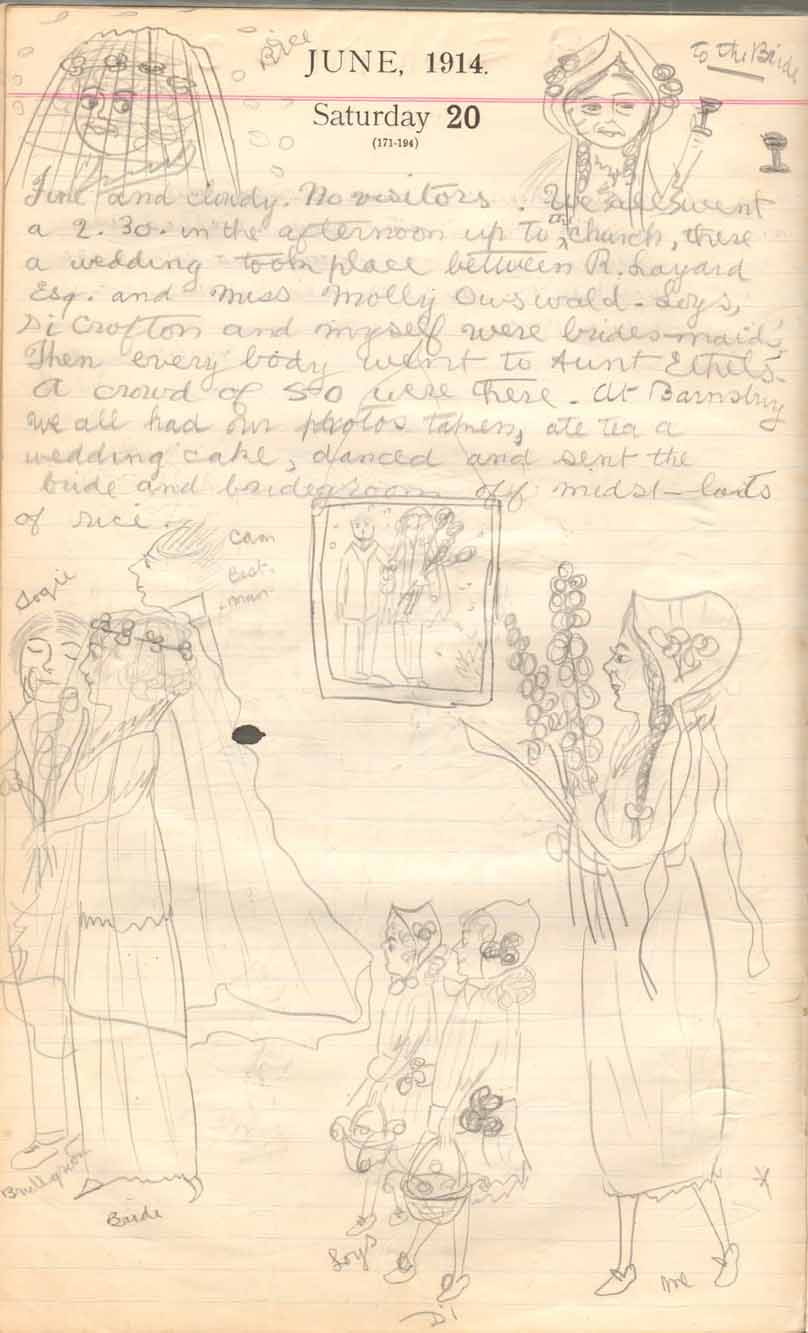 Rice
JUNE, 1914.
to the Bride
Saturday 20
(171-194)
Fine and cloudy. No visitors. We all went
a 2.30. in the afternoon up to the church, there
a wedding took place between R. Layard
Esq. and Miss Molly Ouswald. Loys,
Di Crofton and myself were brides-maids.
Then every body went to Aunt Ethel's.
A crowd of 50 were there. At Barnsbry
we all had our photos taken, ate tea a
wedding cake, danced and sent the
bride and bridegroom off midst lots
of rice.
Cam
Best
man
Bridegroom
Bride
Loys
Di
me